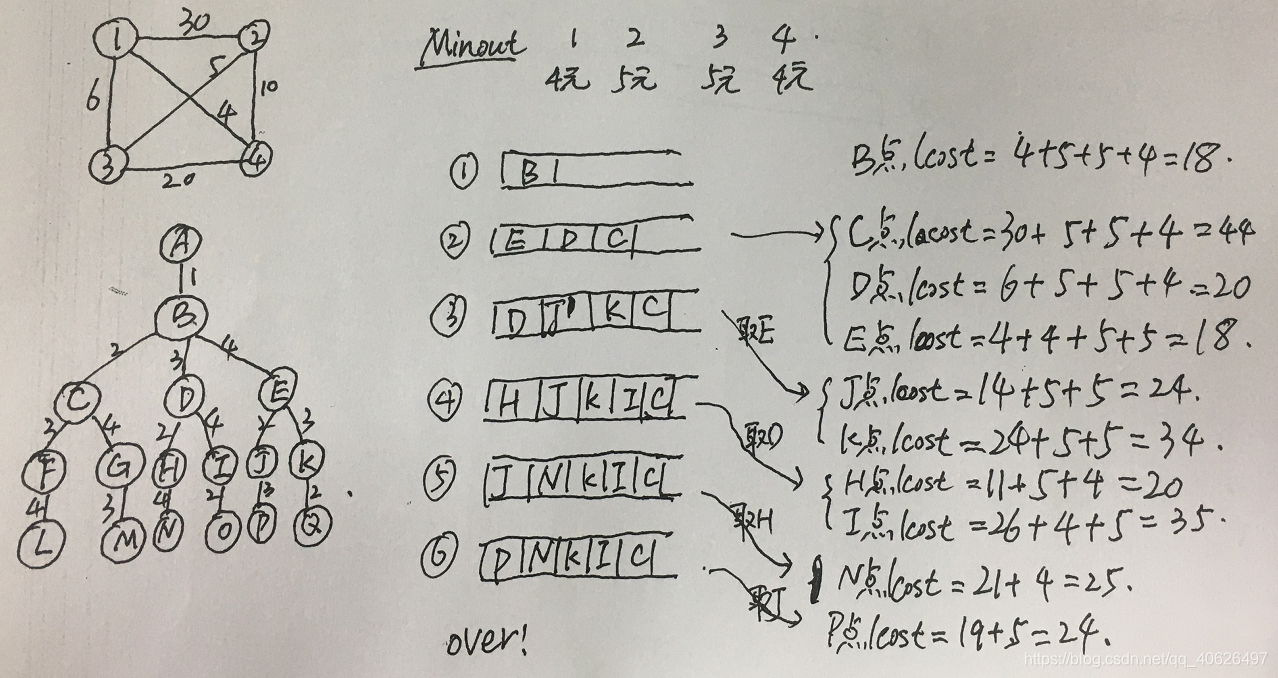 30
1 2
5
6 10
4
3 4
20
Minout 1 2 3 4.
4元 5元 5元 4元
① B
B点,lcost=4+5+5+4=18.
② E D C
C点,lacost=30+5+5+4=44
D点,lcost=6+5+5+4=20
E点,lcost=4+4+5+5=18.
③ D J K C
取E
J点,lcost=14+5+5=24.
K点,lcost=24+5+5=34.
④ H J K I C
取D
H点,lcost=11+5+4=20
I点,lcost=26+4+5=35.
⑤ J N K I C
取H
N点,lcost=21+4=25.
⑥ P N K I C
取J
P点,lcost=19+5=24.
over!
A
1
B
2 3 4
C D E
3 4 2 4 3
F G H I J K
4 3 4 2 3 2
L M N O P Q
https://blog.csdn.net/qq_40626497